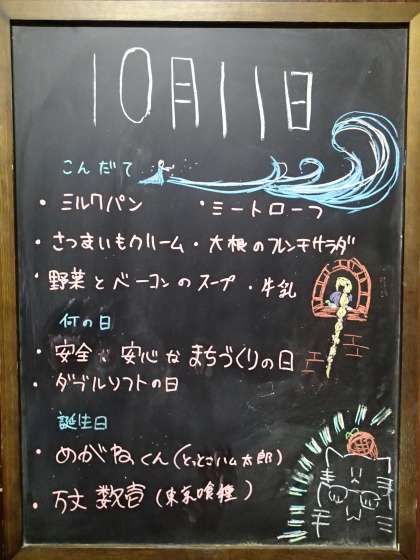 10月11日
こんだて
・ミルクパン ・ミートローフ
・さつまいもクリーム・大根のフレンチサラダ
・野菜とベーコンのスープ・牛乳
何の日
・安全で安心なまちづくりの日
・ダブルソフトの日
誕生日
・めがねくん(とっとこハム太郎)
・万丈数壱(東京喰種)